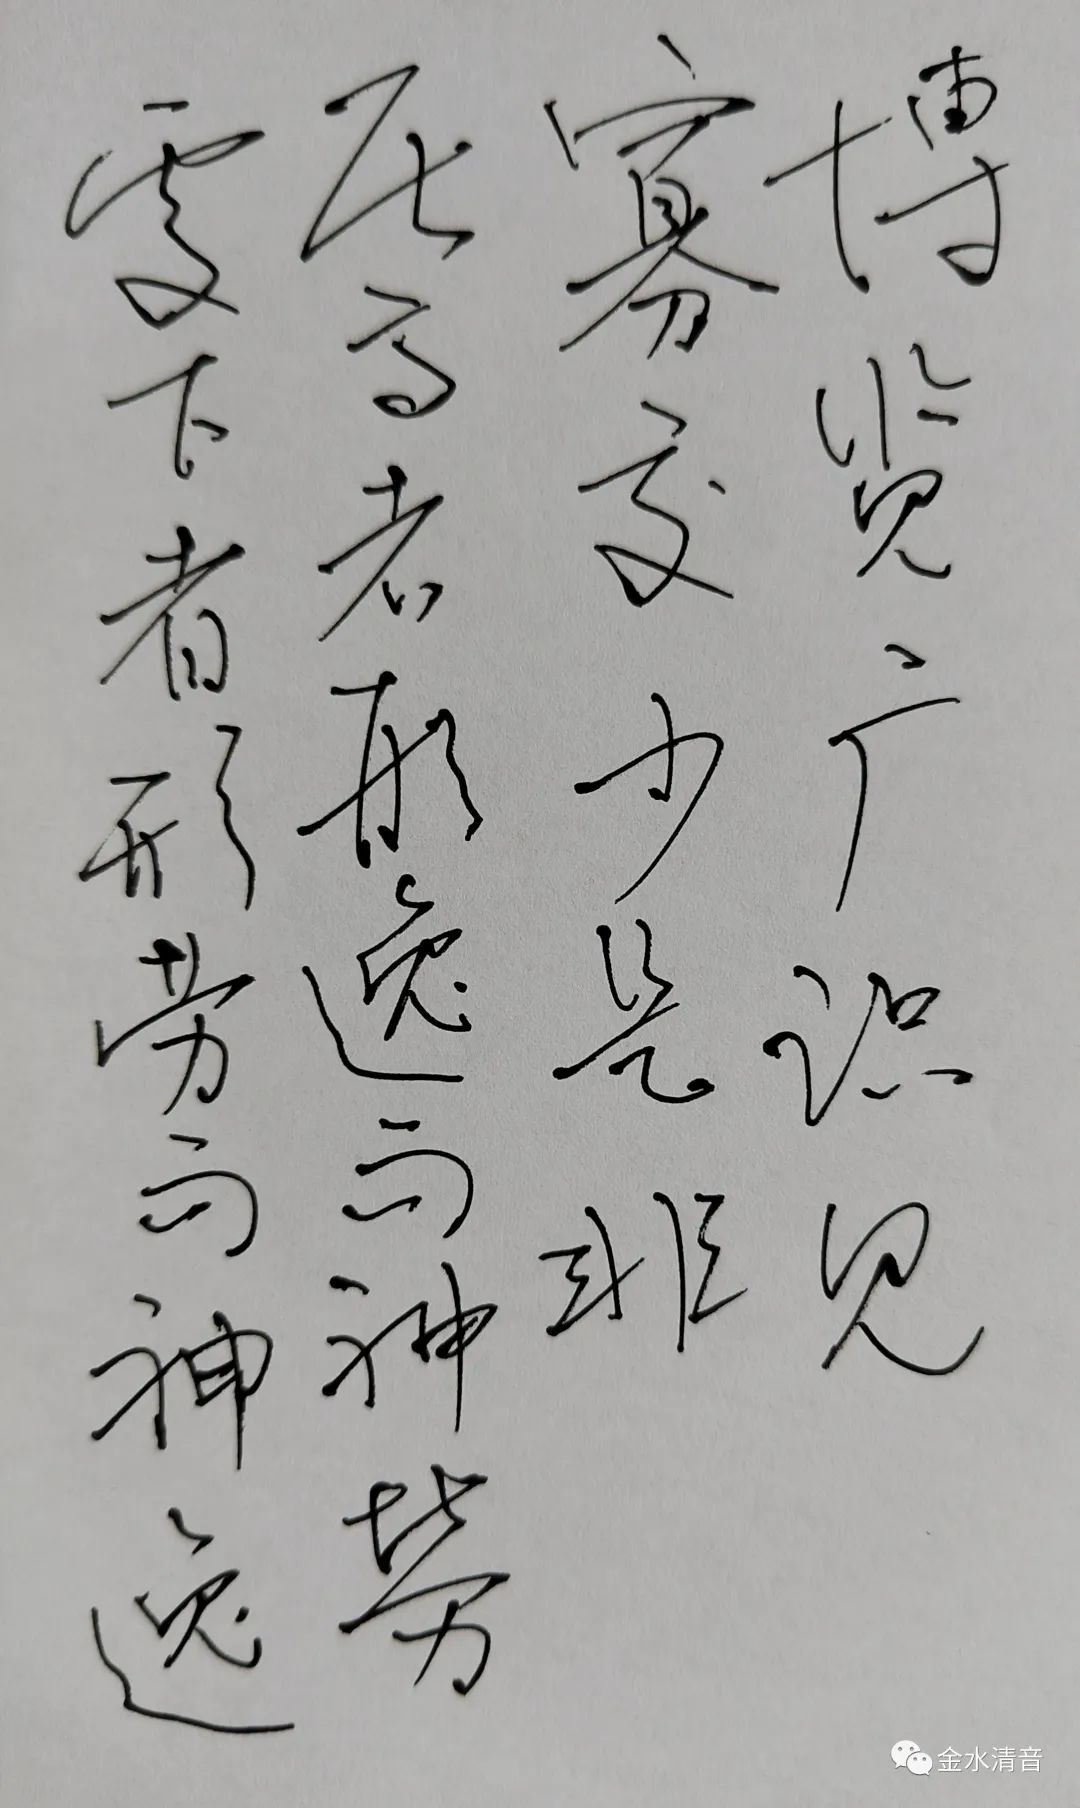 博览广识见
寡交少是非
居高者形逸而神劳
處下者形劳而神逸
金水清音